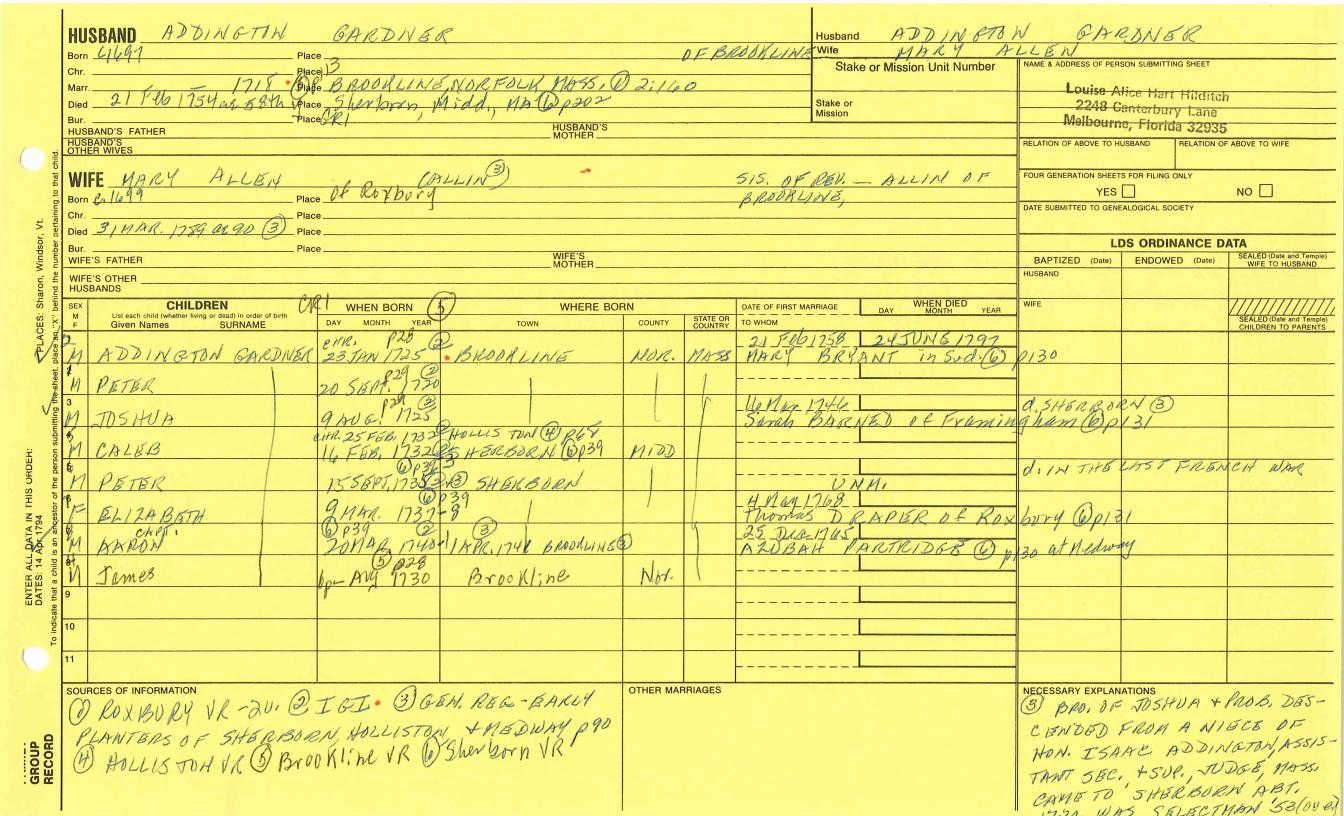 HUSBAND ADDINGTON GARDNER
Born c1697 Place OF BROOKLINE
Chr. Place
Marr. 1718 Place BROOKLINE, NORFOLK MASS, ① 2:160
Died 21 Feb 1754 ae 58th Place Sherborn, Midd., MA ⑥ p202
Bur. Place CR1
HUSBAND'S FATHER HUSBAND'S MOTHER
HUSBAND'S OTHER WIVES
Husband ADDINGTON GARDNER
Wife MARY ALLEN
Stake or Mission Unit Number
Stake or Mission
NAME & ADDRESS OF PERSON SUBMITTING SHEET
Louise Alice Hart Hilditch
2248 Canterbury Lane
Melbourne, Florida 32935
RELATION OF ABOVE TO HUSBAND RELATION OF ABOVE TO WIFE
FOUR GENERATION SHEETS FOR FILING ONLY
YES NO
DATE SUBMITTED TO GENEALOGICAL SOCIETY
WIFE MARY ALLEN (ALLIN ③) SIS. OF REV. — ALLIN OF
Born c.1699 Place of Roxbury BROOKLINE,
Chr. Place
Died 31 MAR. 1789 ae 90 ③ Place
Bur. Place
WIFE'S FATHER WIFE'S MOTHER
WIFE'S OTHER HUSBANDS
LDS ORDINANCE DATA
BAPTIZED (Date) ENDOWED (Date) SEALED (Date and Temple) WIFE TO HUSBAND
HUSBAND
WIFE
SEALED (Date and Temple) CHILDREN TO PARENTS
SEX M F
CHILDREN CR1 WHEN BORN ⑤ WHERE BORN DATE OF FIRST MARRIAGE WHEN DIED
List each child (whether living or dead) in order of birth
Given Names SURNAME DAY MONTH YEAR TOWN COUNTY STATE OR COUNTRY TO WHOM DAY MONTH YEAR
CHR. p28 ② 21 Feb 1758 24 JUNE 1797
M ADDINGTON GARDNER 23 JAN 1725 BROOKLINE NOR. MASS MARY BRYANT in Sud. ⑥ p130
p29 ②
M PETER 20 SEPT. 1720
3 p29 ② 16 Mar 1746 d. SHERBORN ③
M JOSHUA 9 AUG. 1723 Sarah BARNED of Framingham ⑥ p131
CHR. 25 FEB. 1732 HOLLISTON ④ p68
M CALEB 16 FEB. 1732 SHERBORN ⑥ p39 MIDD
⑥ p39 d. IN THE LAST FRENCH WAR
M PETER 15 SEPT. 1735 SHERBORN UNM.
⑥ p39 4 May 1768
F ELIZABETH 9 MAR. 1737-8 Thomas DRAPER of Roxbury ⑥ p131
CAPT. ⑥ p39 ② ③ 25 Dec 1765
M AARON 20 MAR. 1740-1 1 APR. 1741 BROOKLINE ③ AZUBAH PARTRIDGE ⑥ p130 at Medway
⑤ p28
M James bp Aug 1730 Brookline Nor.
9
10
11
SOURCES OF INFORMATION
① ROXBURY VR -2v. ② IGI ③ GEN. REG-EARLY
PLANTERS OF SHERBORN, HOLLISTON & MEDWAY p90
④ HOLLISTON VR ⑤ Brookline VR ⑥ Sherborn VR
OTHER MARRIAGES
NECESSARY EXPLANATIONS
③ BRO. OF JOSHUA & PROB. DES-
CENDED FROM A NIECE OF
HON. ISAAC ADDINGTON, ASSIS-
TANT SEC. & SUP., JUDGE, MASS.
CAME TO SHERBORN ABT.
WAS SELECTMAN '53
ENTER ALL DATA IN THIS ORDER:
DATES: 14 Apr 1794 PLACES: Sharon, Windsor, Vt.
To indicate that a child is an ancestor of the person submitting the sheet, place an "X" behind the number pertaining to that child.
GROUP RECORD